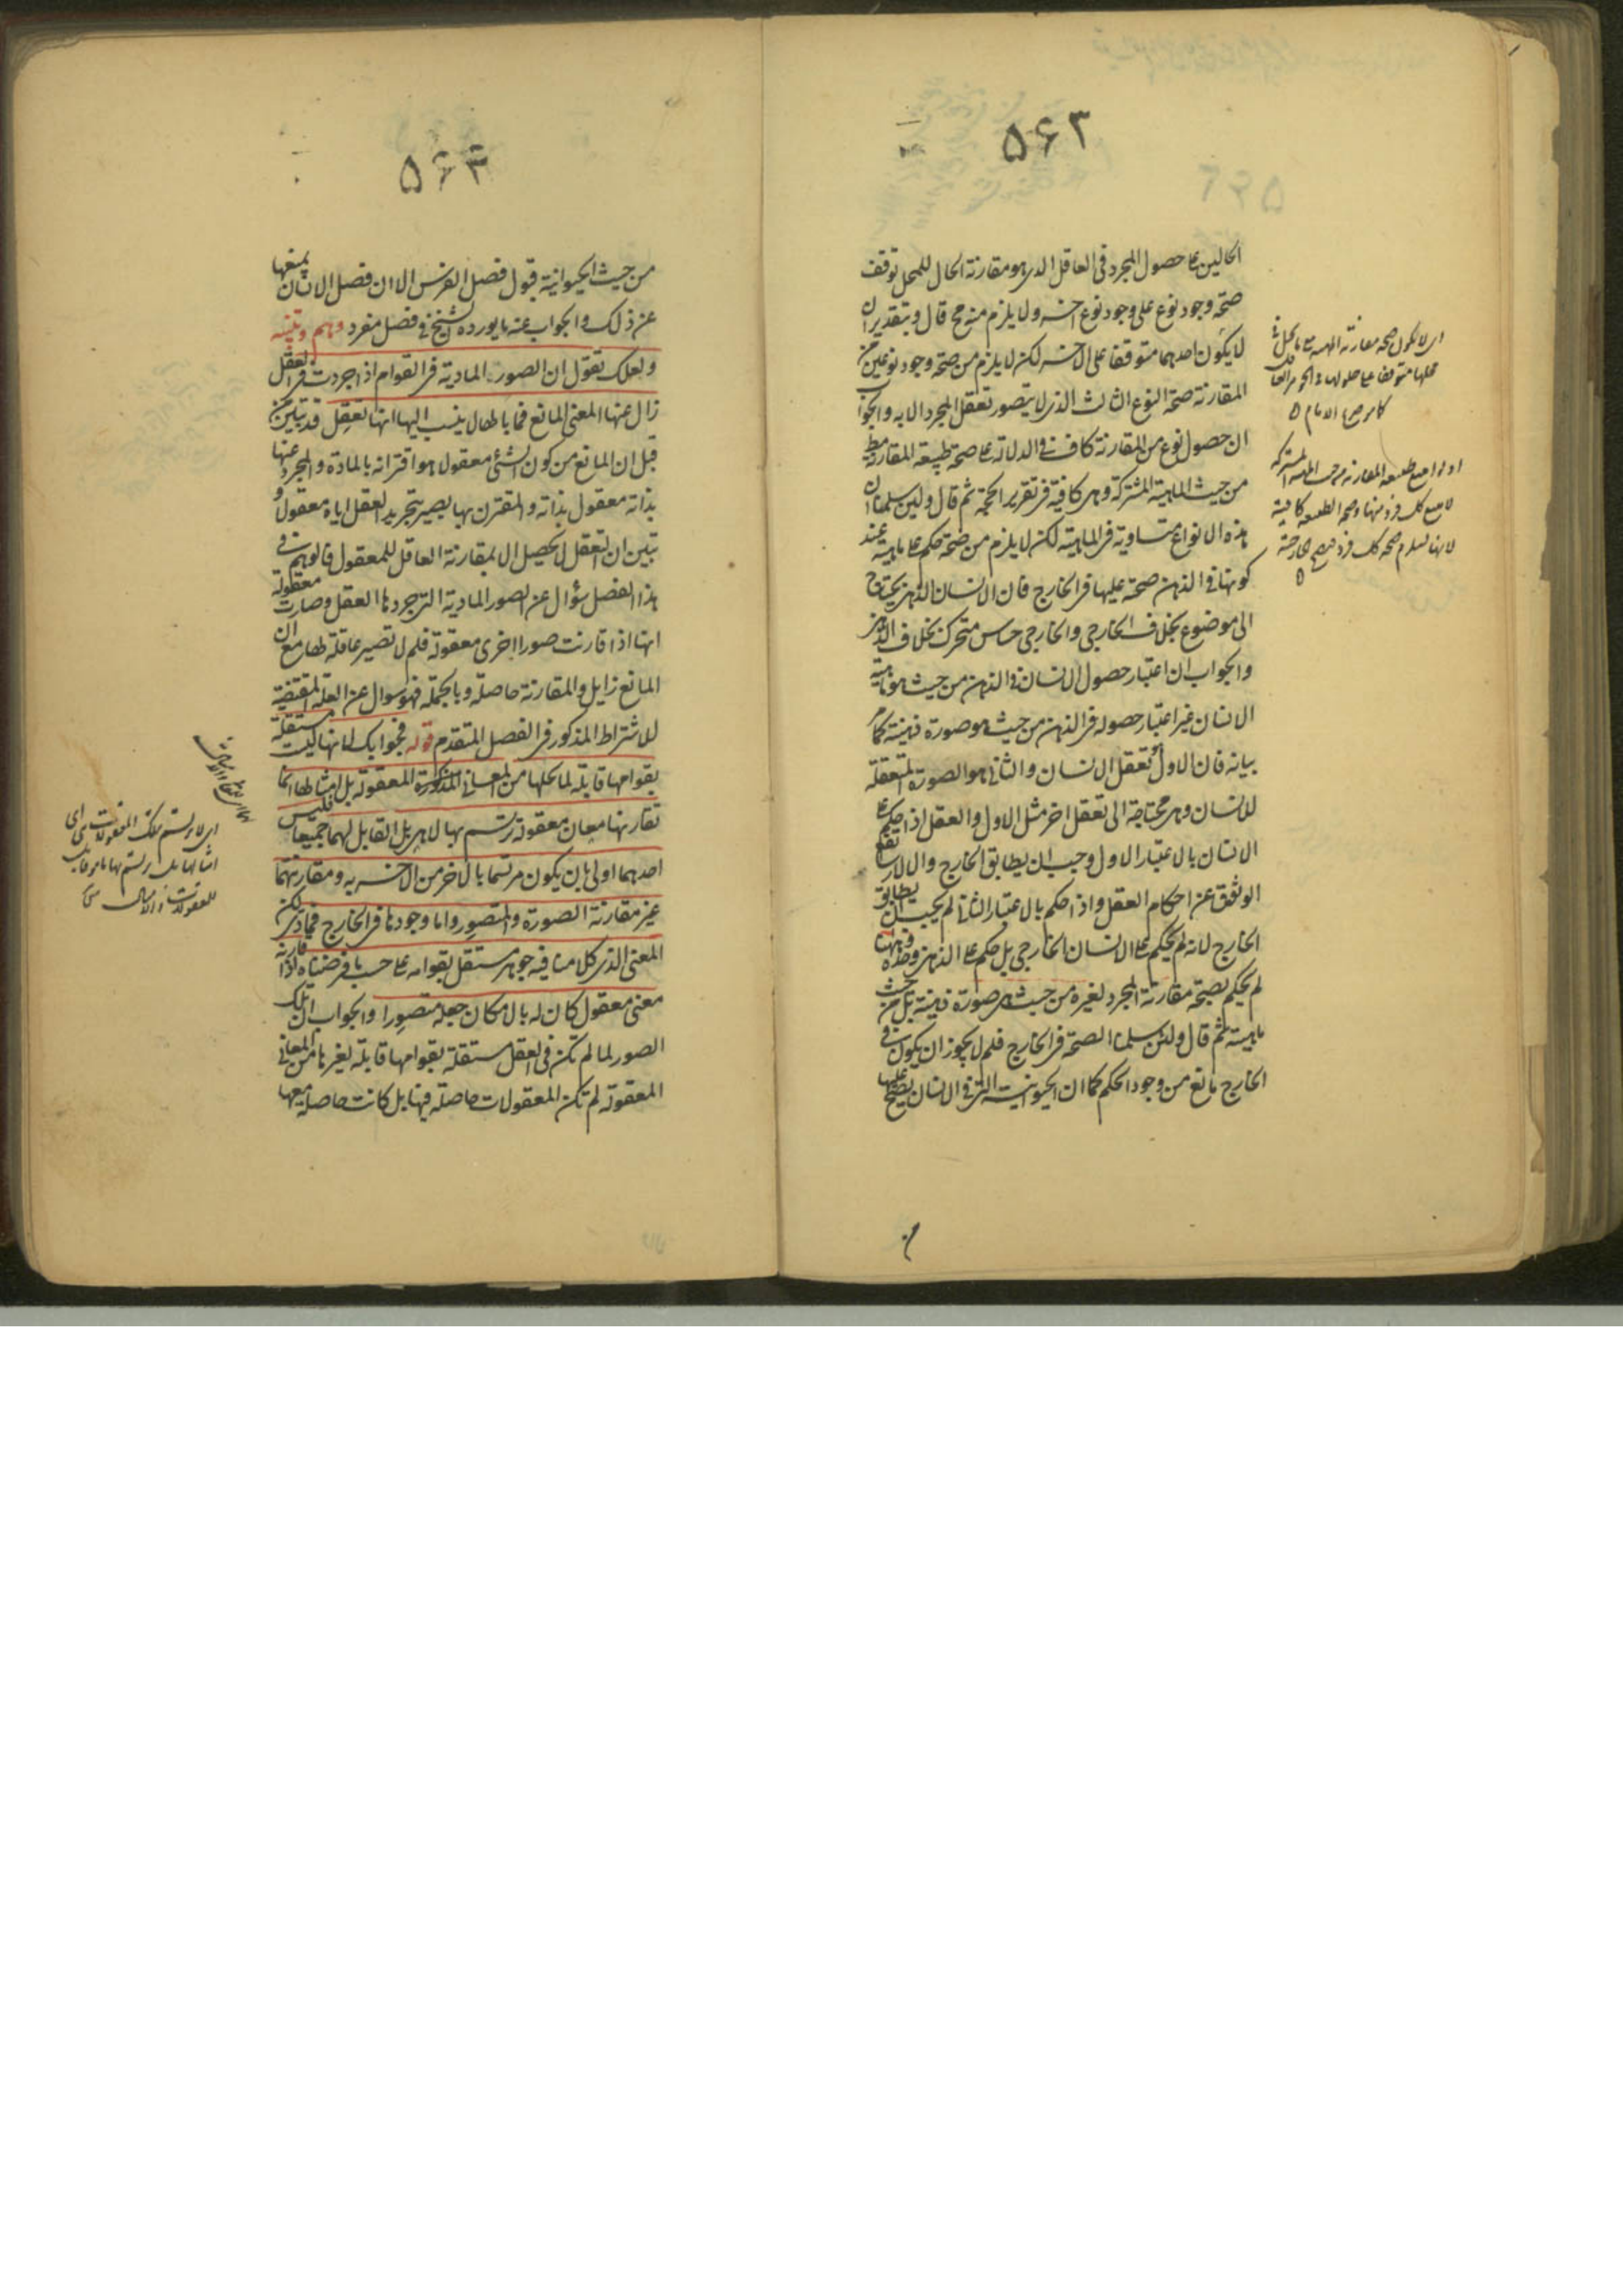 ۵۶۳
الحالين على حصول المجرد فى العاقل الذى هو مقارنة الحال للمحل توقف
صحة وجود نوع على وجود نوع اخر ولا يلزم منه مح قال وبتقدير ان
لا يكون احدهما متوقفا على الاخر لكن لا يلزم من صحة وجود نوعين من
المقارنة صحة النوع الثالث الذى لا يتصور تعقل المجرد الا به والجواب
ان حصول نوع من المقارنة كاف فى الدلالة على صحة طبيعة المقارنة مط
من حيث الماهية المشتركة وهى كافية فى تقرير الحجة ثم قال ولين سلمنا ان
هذه الانواع متساوية فى الماهية لكن لا يلزم من صحة حكم على ماهية عند
كونها فى الذهن صحة عليها فى الخارج فان الانسان الذهنى يحتاج
الى موضوع بخلاف الخارجى والخارجى حساس متحرك بخلاف الذهنى
والجواب ان اعتبار حصول الانسان فى الذهن من حيث هو ماهية
الانسان غير اعتبار حصوله فى الذهن من حيث هو صورة ذهنية كما مر
بيانه فان الاول تعقل الانسان والثانى هو الصورة المتعقلة
للانسان وهى محتاجة الى تعقل اخر مثل الاول والعقل اذا حكم على
الانسان بالاعتبار الاول وجب ان يطابق الخارج والا لارتفع
الوثوق عن احكام العقل واذا حكم بالاعتبار الثانى لم يجب ان يطابق
الخارج لانه لم يحكم على الانسان الخارجى بل حكم على الذهنى وحده وههنا
لم يحكم بصحة مقارنة المجرد لغيره من حيث هى صورة ذهنية بل من حيث
ماهيته ثم قال ولئن سلمنا الصحة فى الخارج فلم لا يجوز ان يكون فى
الخارج مانع من وجود الحكم كما ان الحيوانية التى فى الانسان يصح عليها
كما صرح به الامام
۵۶۴
من حيث الحيوانية قبول فصل الفرس الا ان فصل الانسان يمنعها
عن ذلك والجواب عنه ما يورده الشيخ فى فصل مفرد وهم وتنبيه
ولعلك تقول ان الصور المادية فى القوام اذا جردت فى العقل
زال عنها المعنى المانع فما بالها لا ينسب اليها انها تعقل قد تبين من
قبل ان المانع من كون الشئ معقولا هو اقترانه بالمادة والمجرد عنها
بذاته معقول بذاته والمقترن بها يصير بتجريد العقل اياه معقولا و
تبين ان التعقل لا يحصل الا بمقارنة العاقل للمعقول فالوهم فى
هذا الفصل سؤال عن الصور المادية التى جردها العقل وصارت معقولة
انها اذا قارنت صورا اخرى معقولة فلم لا تصير عاقلة لها مع ان
المانع زايل والمقارنة حاصلة وبالجملة فهو سوال عن العلة المقتضية
للاشتراط المذكور فى الفصل المتقدم قوله فجوابك لانها ليست مستقلة
بقوامها قابلة لما يحلها من المعانى المعقولة بل امثالها انما
تقارنها معان معقولة ترتسم بها لا هى بل القابل لهما جميعا فليس
احدهما اولى بان يكون مرتسما بالاخر من الاخر به ومقارنتهما
غير مقارنة الصورة والمتصور واما وجودها فى الخارج فمادى لكن
المعنى الذى كلامنا فيه جوهر مستقل بقوامه على حسب ما فرضناه اذا قارنه
معنى معقول كان له بالامكان جعله متصورا والجواب ان تلك
الصور لما لم تكن فى العقل مستقلة بقوامها قابلة لغيرها من المعانى
المعقولة لم تكن المعقولات حاصلة فيها بل كانت حاصلة معها